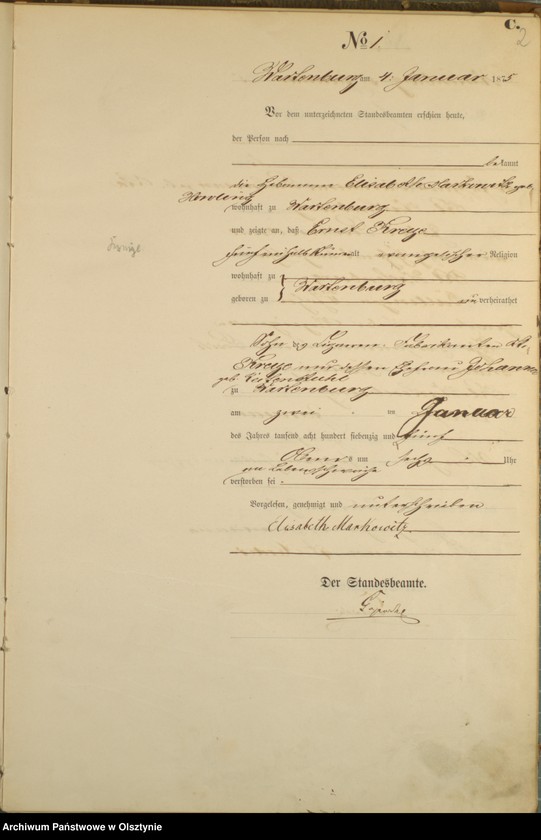 C.
2
No 1.
Wartenburg am 4. Januar 1875
Vor dem unterzeichneten Standesbeamten erschien heute,
der Person nach
bekannt
die Hebamme Elisabeth Markowitz geb.
wohnhaft zu Wartenburg
und zeigte an, daß Ernst
alt evangelischer Religion
wohnhaft zu
Wartenburg
geboren zu unverheirathet
Sohn des
und dessen Ehefrau Johanna
geb.
zu Wartenburg
am zwei ten Januar
des Jahres tausend acht hundert siebenzig und fünf
Abends um sechs Uhr
an Lebensschwäche
verstorben sei.
Vorgelesen, genehmigt und unterschrieben
Elisabeth Markowitz
Der Standesbeamte.
Archiwum Państwowe w Olsztynie